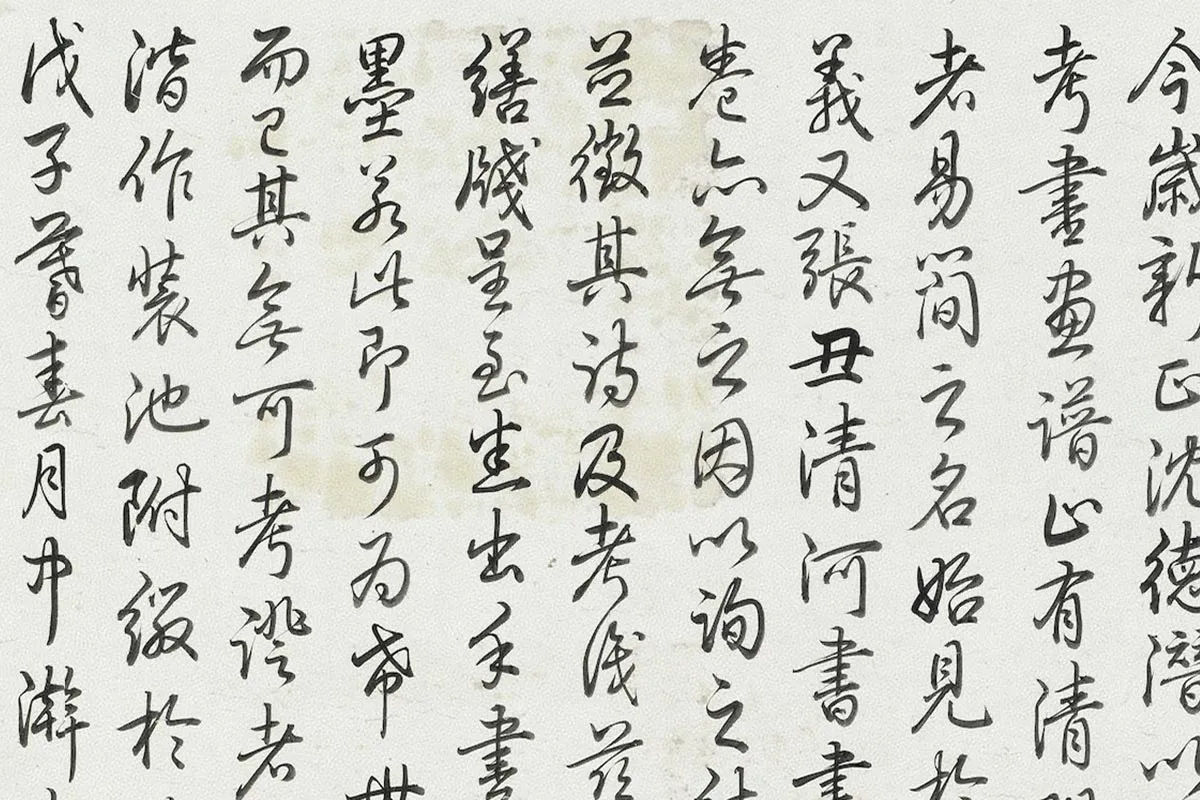 今歲新正沈德潛以
考書畫譜止有清
者易簡之名始見於
義又張丑清河書書
卷亦無之因以詢之
並徵其詩及考識茲
繕牋呈至先出手書
墨若此即可為希世
而已其無可考證者
潛作裝池附綴於
戊子暮春月中澣